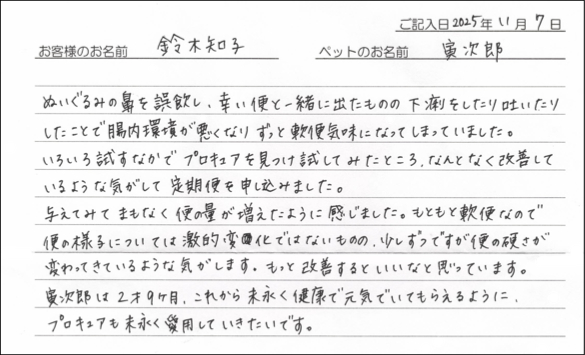 ご記入日 2025年 11月 7日
お客様のお名前 鈴木知子 ペットのお名前 寅次郎
ぬいぐるみの鼻を誤飲し、幸い便と一緒に出たものの下痢をしたり吐いたり
したことで腸内環境が悪くなり ずっと軟便気味になってしまっていました。
いろいろ試すなかで プロキュアを見つけ試してみたところ、なんとなく改善して
いるような気がして 定期便を申し込みました。
与えてみて まもなく 便の量が増えたように感じました。もともと軟便なので
便の様子については激的変化ではないものの、少しずつですが便の硬さが
変わってきているような気がします。もっと改善するといいなと思っています。
寅次郎は2才9ヶ月、これから末永く健康で元気でいてもらえるように、
プロキュアも末永く愛用していきたいです。